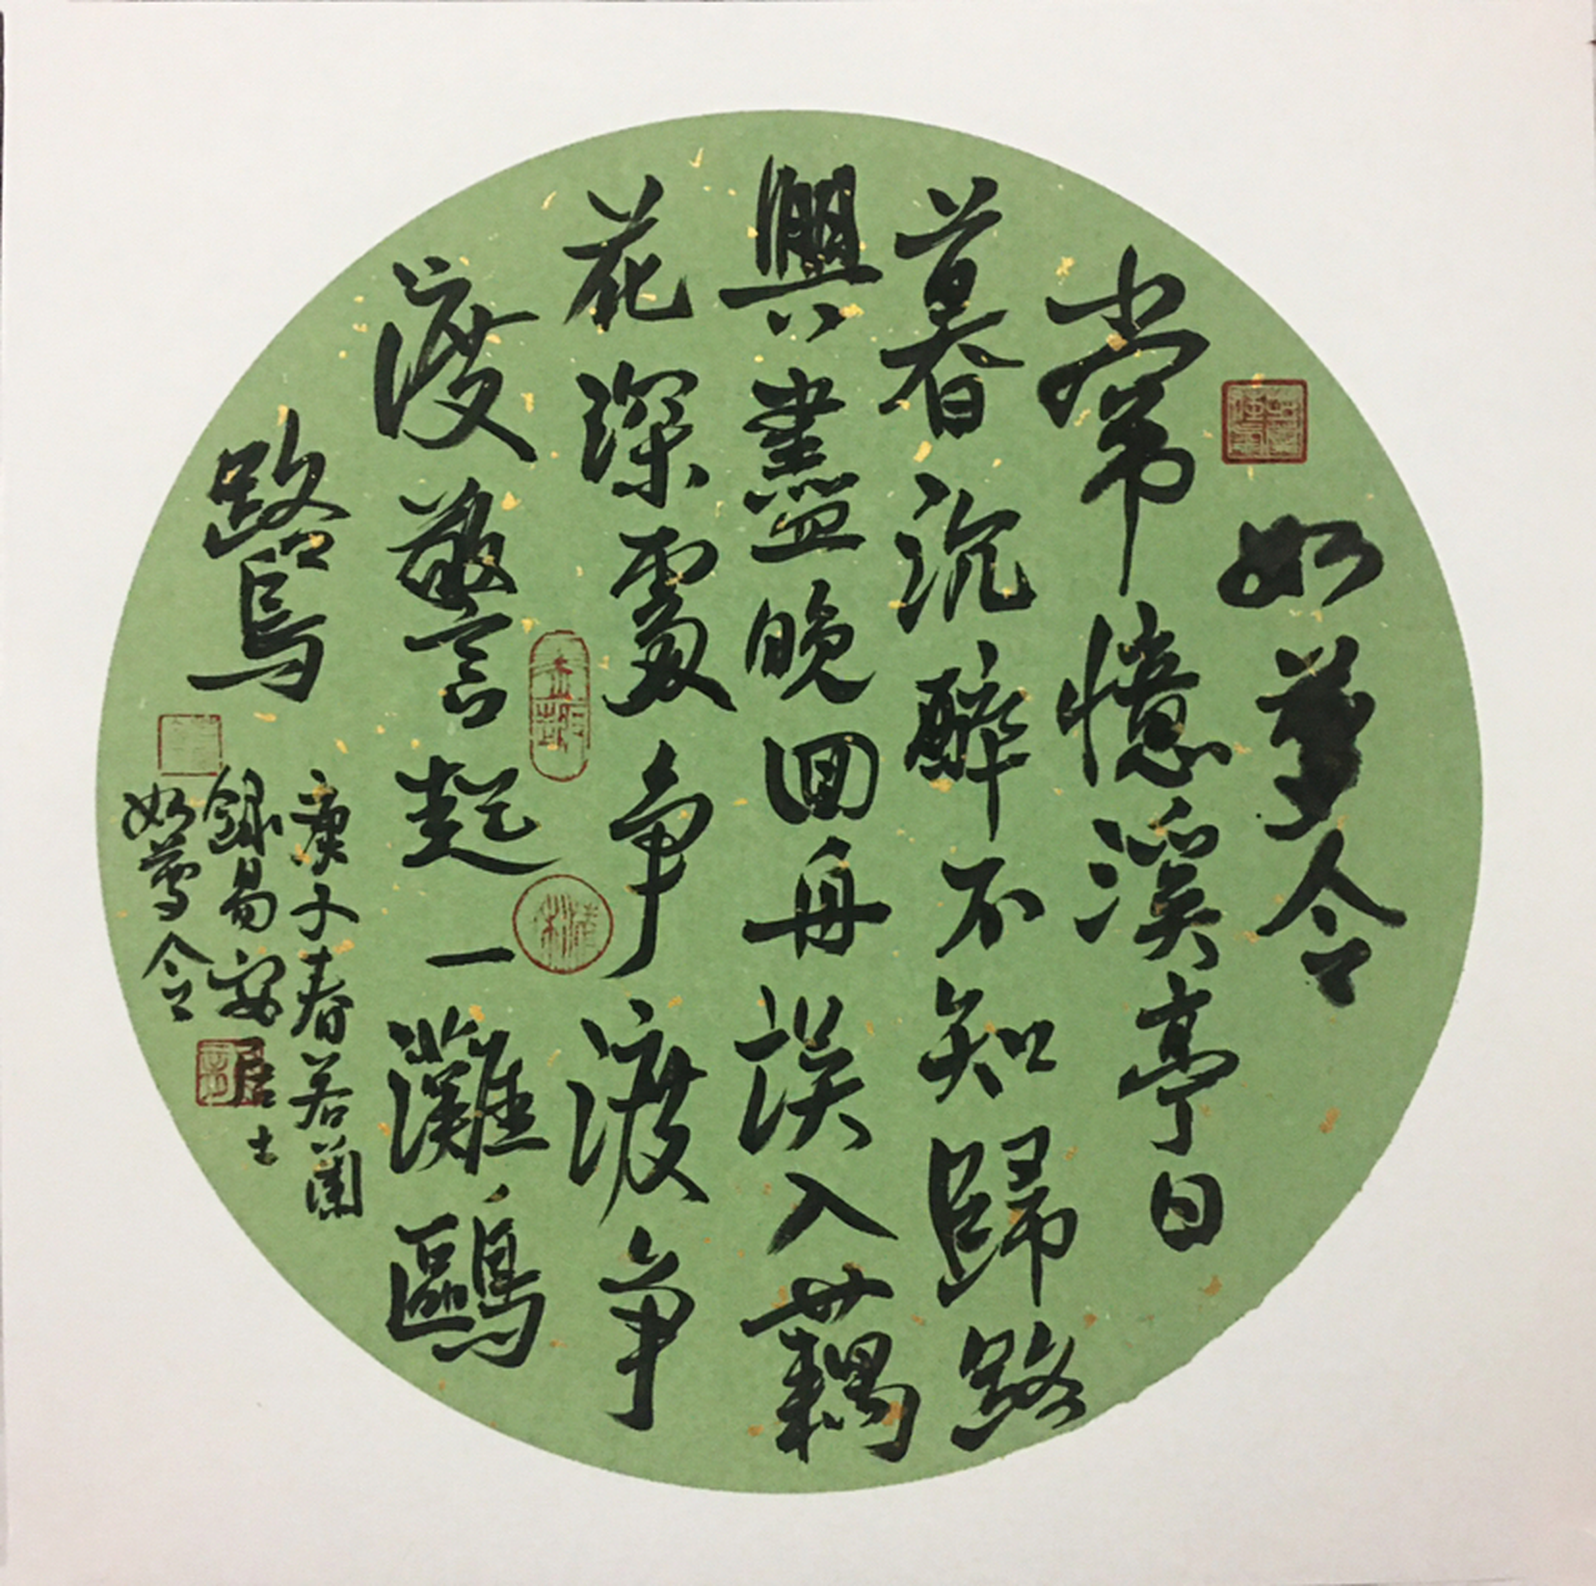 如夢令
常憶溪亭日
暮沉醉不知歸路
興盡晚回舟誤入藕
花深處争渡争
渡警起一灘鷗
鷺
庚子春若蘭
錄易安居士
如夢令